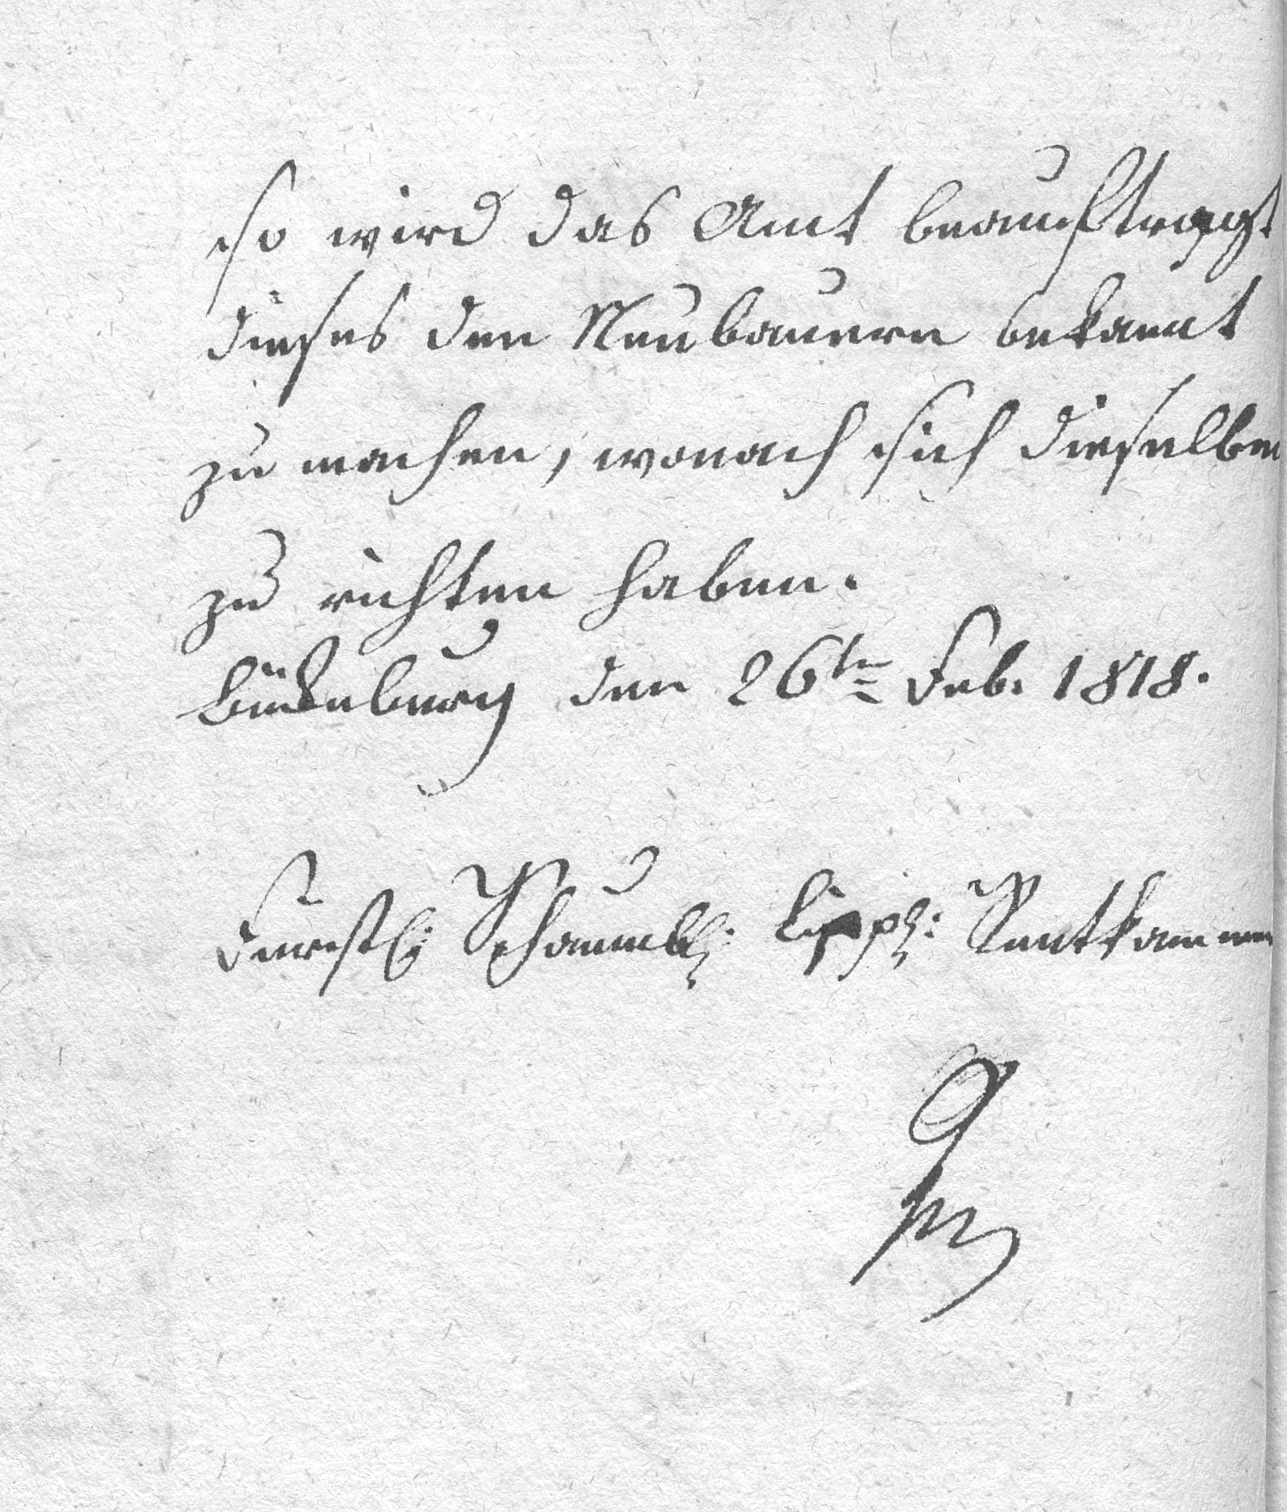 so wird das Amt beauftragt
dieses den Neubauern bekannt
zu machen, wonach sich dieselben
zu richten haben.
Bückeburg den 26ten Feb. 1818.
Fürstl: Schaumb: Lipp: Rentkammer